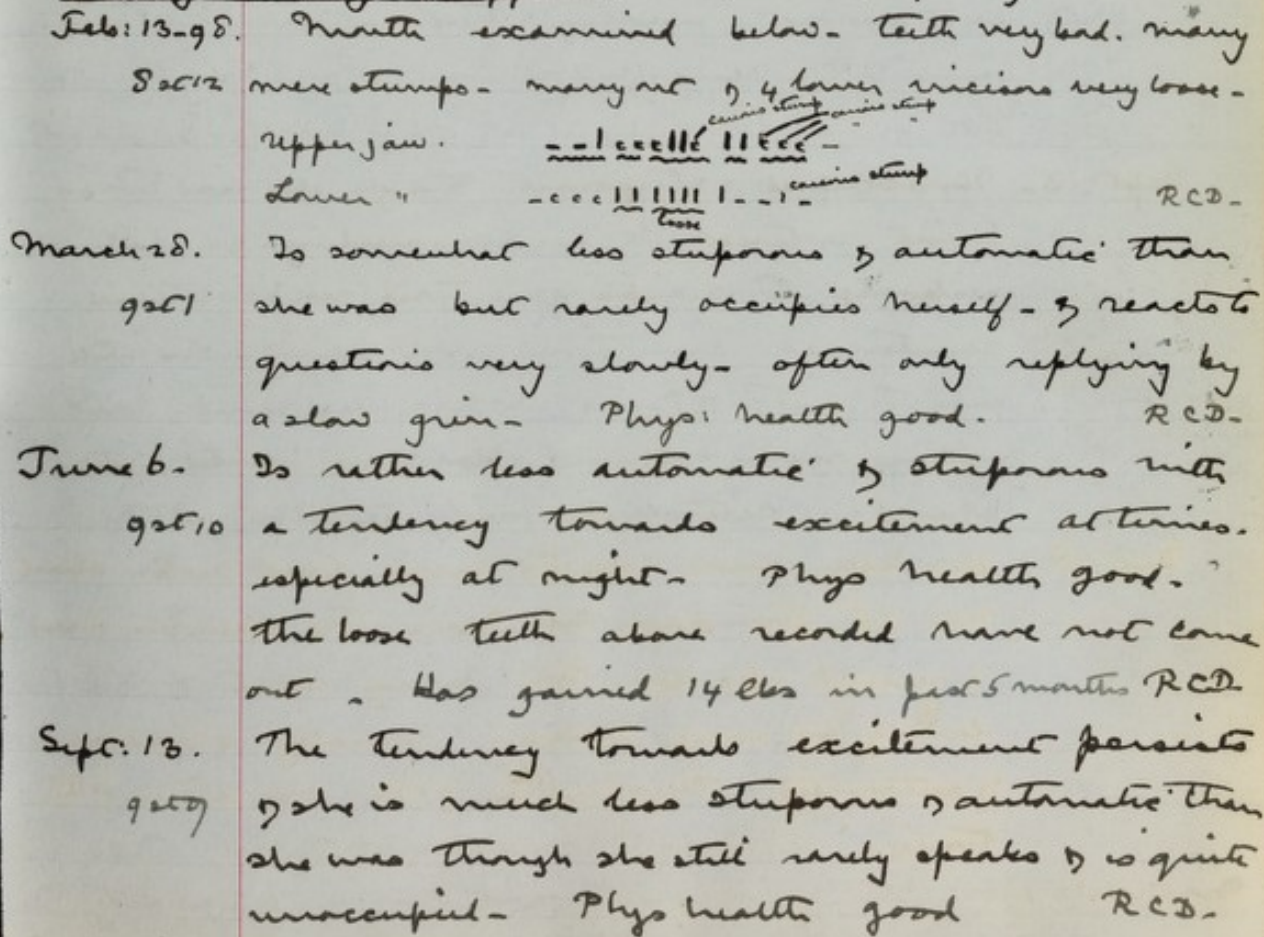 Feb: 13-98. Mouth examined below - teeth very bad. many
8 st 12 mere stumps - many out & 4 lower incisors very loose -
carious stump carious stump
Upper jaw.
carious stump
Lower " RCD -
loose
March 28. Is somewhat less stuporous & automatic than
9 st 1 she was but rarely occupies herself - & reacts to
questions very slowly - often only replying by
a slow grin - Phys: health good. RCD -
June 6 - Is rather less automatic & stuporous with
9 st 10 a tendency towards excitement at times.
especially at night - Phys health good -
the loose teeth above recorded have not come
out - Has gained 14 lbs in past 5 months RCD
Sept: 13. The tendency towards excitement persists
9 st 9 & she is much less stuporous & automatic than
she was though she still rarely speaks & is quite
unoccupied - Phys health good RCD -